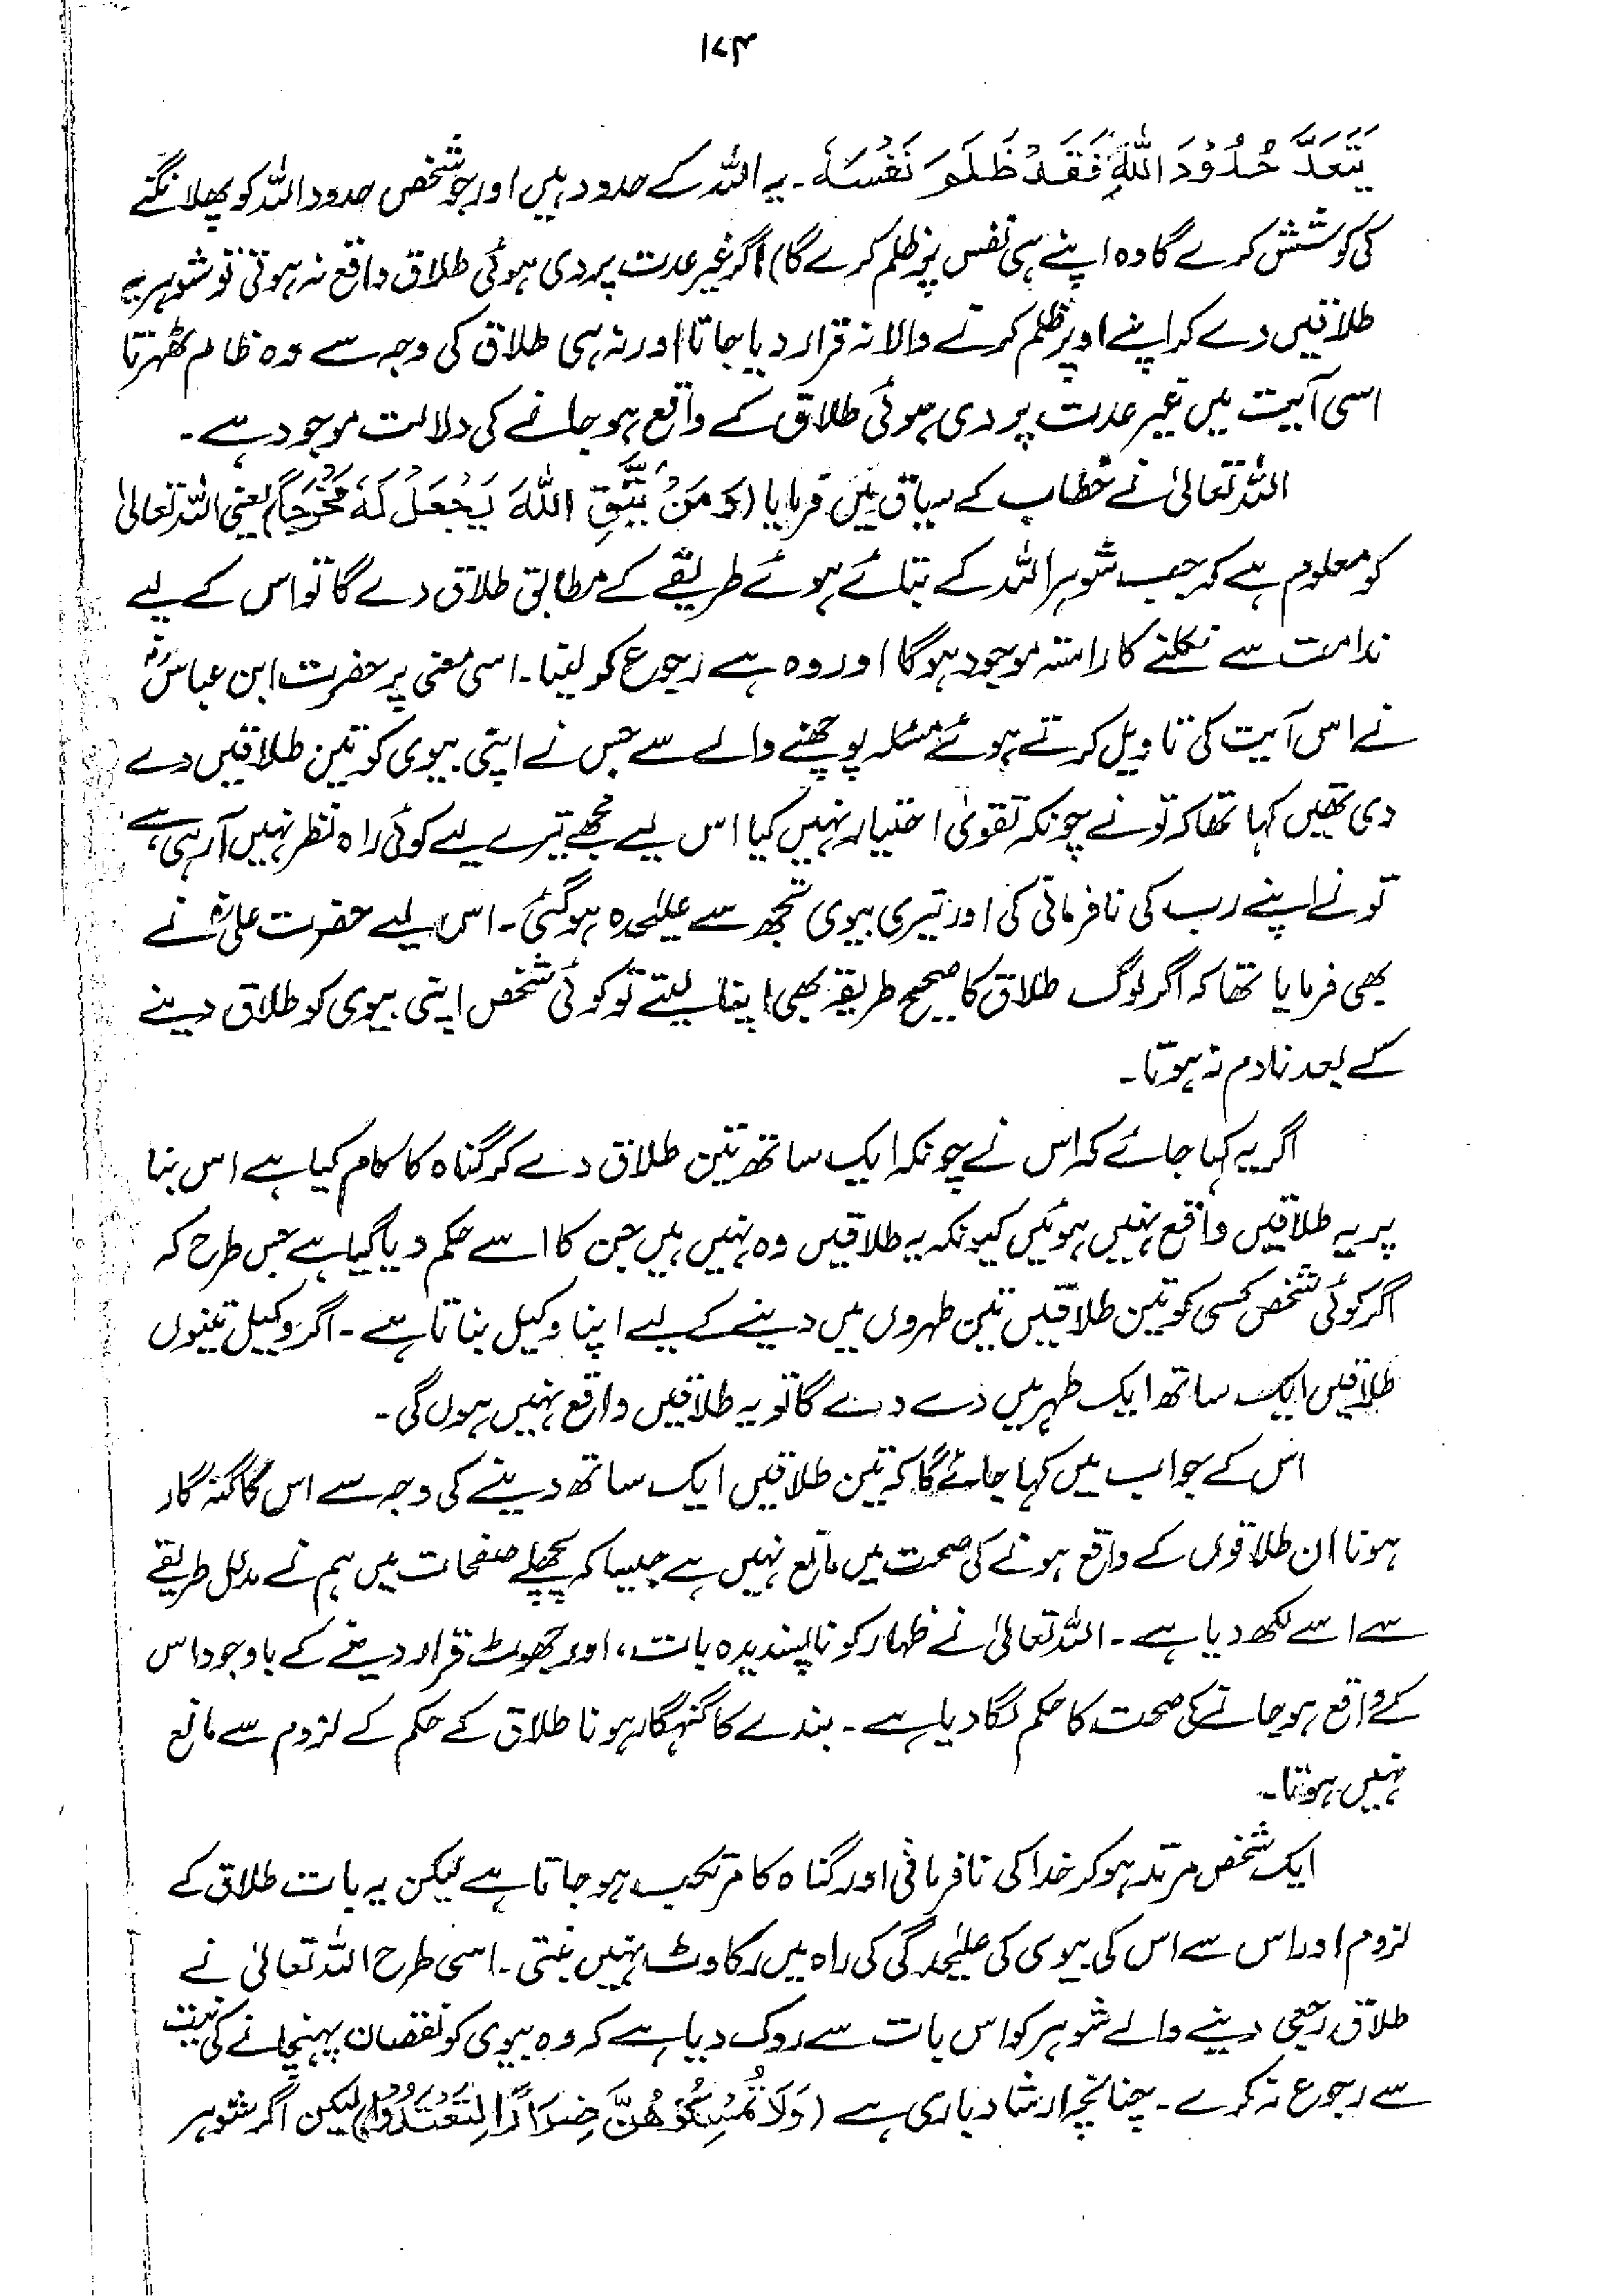 ۱۷۴
یَتَعَدَّ حُدُوْدَ اللّٰهِ فَقَدْ ظَلَمَ نَفْسَهٗ۔ یہ اللہ کے حدود ہیں اور جو شخص حدود اللہ کو پھلانگنے
کی کوشش کرے گا وہ اپنے ہی نفس پر ظلم کرے گا) اگر غیر عدت پر دی ہوئی طلاق واقع نہ ہوتی تو شوہر یہ
طلاقیں دے کر اپنے اوپر ظلم کرنے والا نہ قرار دیا جاتا اور نہ ہی طلاق کی وجہ سے وہ ظالم ٹھہرتا
اسی آیت میں غیر عدت پر دی ہوئی طلاق کے واقع ہو جانے کی دلالت موجود ہے۔
اللہ تعالیٰ نے خطاب کے سیاق میں فرمایا (وَمَنْ یَّتَّقِ اللّٰهَ یَجْعَلْ لَهٗ مَخْرَجًا) یعنی اللہ تعالیٰ
کو معلوم ہے کہ جب شوہر اللہ کے بتلائے ہوئے طریقے کے مطابق طلاق دے گا تو اس کے لیے
ندامت سے نکلنے کا راستہ موجود ہوگا اور وہ ہے رجوع کر لینا۔ اسی معنی پر حضرت ابن عباسؓ
نے اس آیت کی تاویل کرتے ہوئے مسئلہ پوچھنے والے سے جس نے اپنی بیوی کو تین طلاقیں دے
دی تھیں کہا تھا کہ تو نے چونکہ تقویٰ اختیار نہیں کیا اس لیے مجھے تیرے لیے کوئی راہ نظر نہیں آرہی ہے
تو نے اپنے رب کی نافرمانی کی اور تیری بیوی تجھ سے علیٰحدہ ہوگئی۔ اس لیے حضرت علیؓ نے
بھی فرمایا تھا کہ اگر لوگ طلاق کا صحیح طریقہ بھی اپنا لیتے تو کوئی شخص اپنی بیوی کو طلاق دینے
کے بعد نادم نہ ہوتا۔
اگر یہ کہا جائے کہ اس نے چونکہ ایک ساتھ تین طلاق دے کر گناہ کا کام کیا ہے اس بنا
پر یہ طلاقیں واقع نہیں ہوئیں کیونکہ یہ طلاقیں وہ نہیں ہیں جن کا اسے حکم دیا گیا ہے جس طرح کہ
اگر کوئی شخص کسی کو تین طلاقیں تین طہروں میں دینے کے لیے اپنا وکیل بناتا ہے۔ اگر وکیل تینوں
طلاقیں ایک ساتھ ایک طہر میں دے دے گا تو یہ طلاقیں واقع نہیں ہوں گی۔
اس کے جواب میں کہا جائے گا کہ تین طلاقیں ایک ساتھ دینے کی وجہ سے اس کا گنہ گار
ہونا ان طلاقوں کے واقع ہونے کی صحت میں مانع نہیں ہے جیسا کہ پچھلے صفحات میں ہم نے مدلل طریقے
سے اسے لکھ دیا ہے۔ اللہ تعالیٰ نے ظہار کو ناپسندیدہ بات، اور جھوٹ قرار دینے کے باوجود اس
کے واقع ہو جانے کی صحت کا حکم لگا دیا ہے۔ بندے کا گنہگار ہونا طلاق کے حکم کے لزوم سے مانع
نہیں ہوتا۔
ایک شخص مرتد ہو کر خدا کی نافرمانی اور گناہ کا مرتکب ہو جاتا ہے لیکن یہ بات طلاق کے
لزوم اور اس سے اس کی بیوی کی علیٰحدگی کی راہ میں رکاوٹ نہیں بنتی۔ اسی طرح اللہ تعالیٰ نے
طلاق رجعی دینے والے شوہر کو اس بات سے روک دیا ہے کہ وہ بیوی کو نقصان پہنچانے کی نیت
سے رجوع نہ کرے۔ چنانچہ ارشاد باری ہے (وَلَا تُمْسِكُوْهُنَّ ضِرَارًا لِّتَعْتَدُوْا) لیکن اگر شوہر